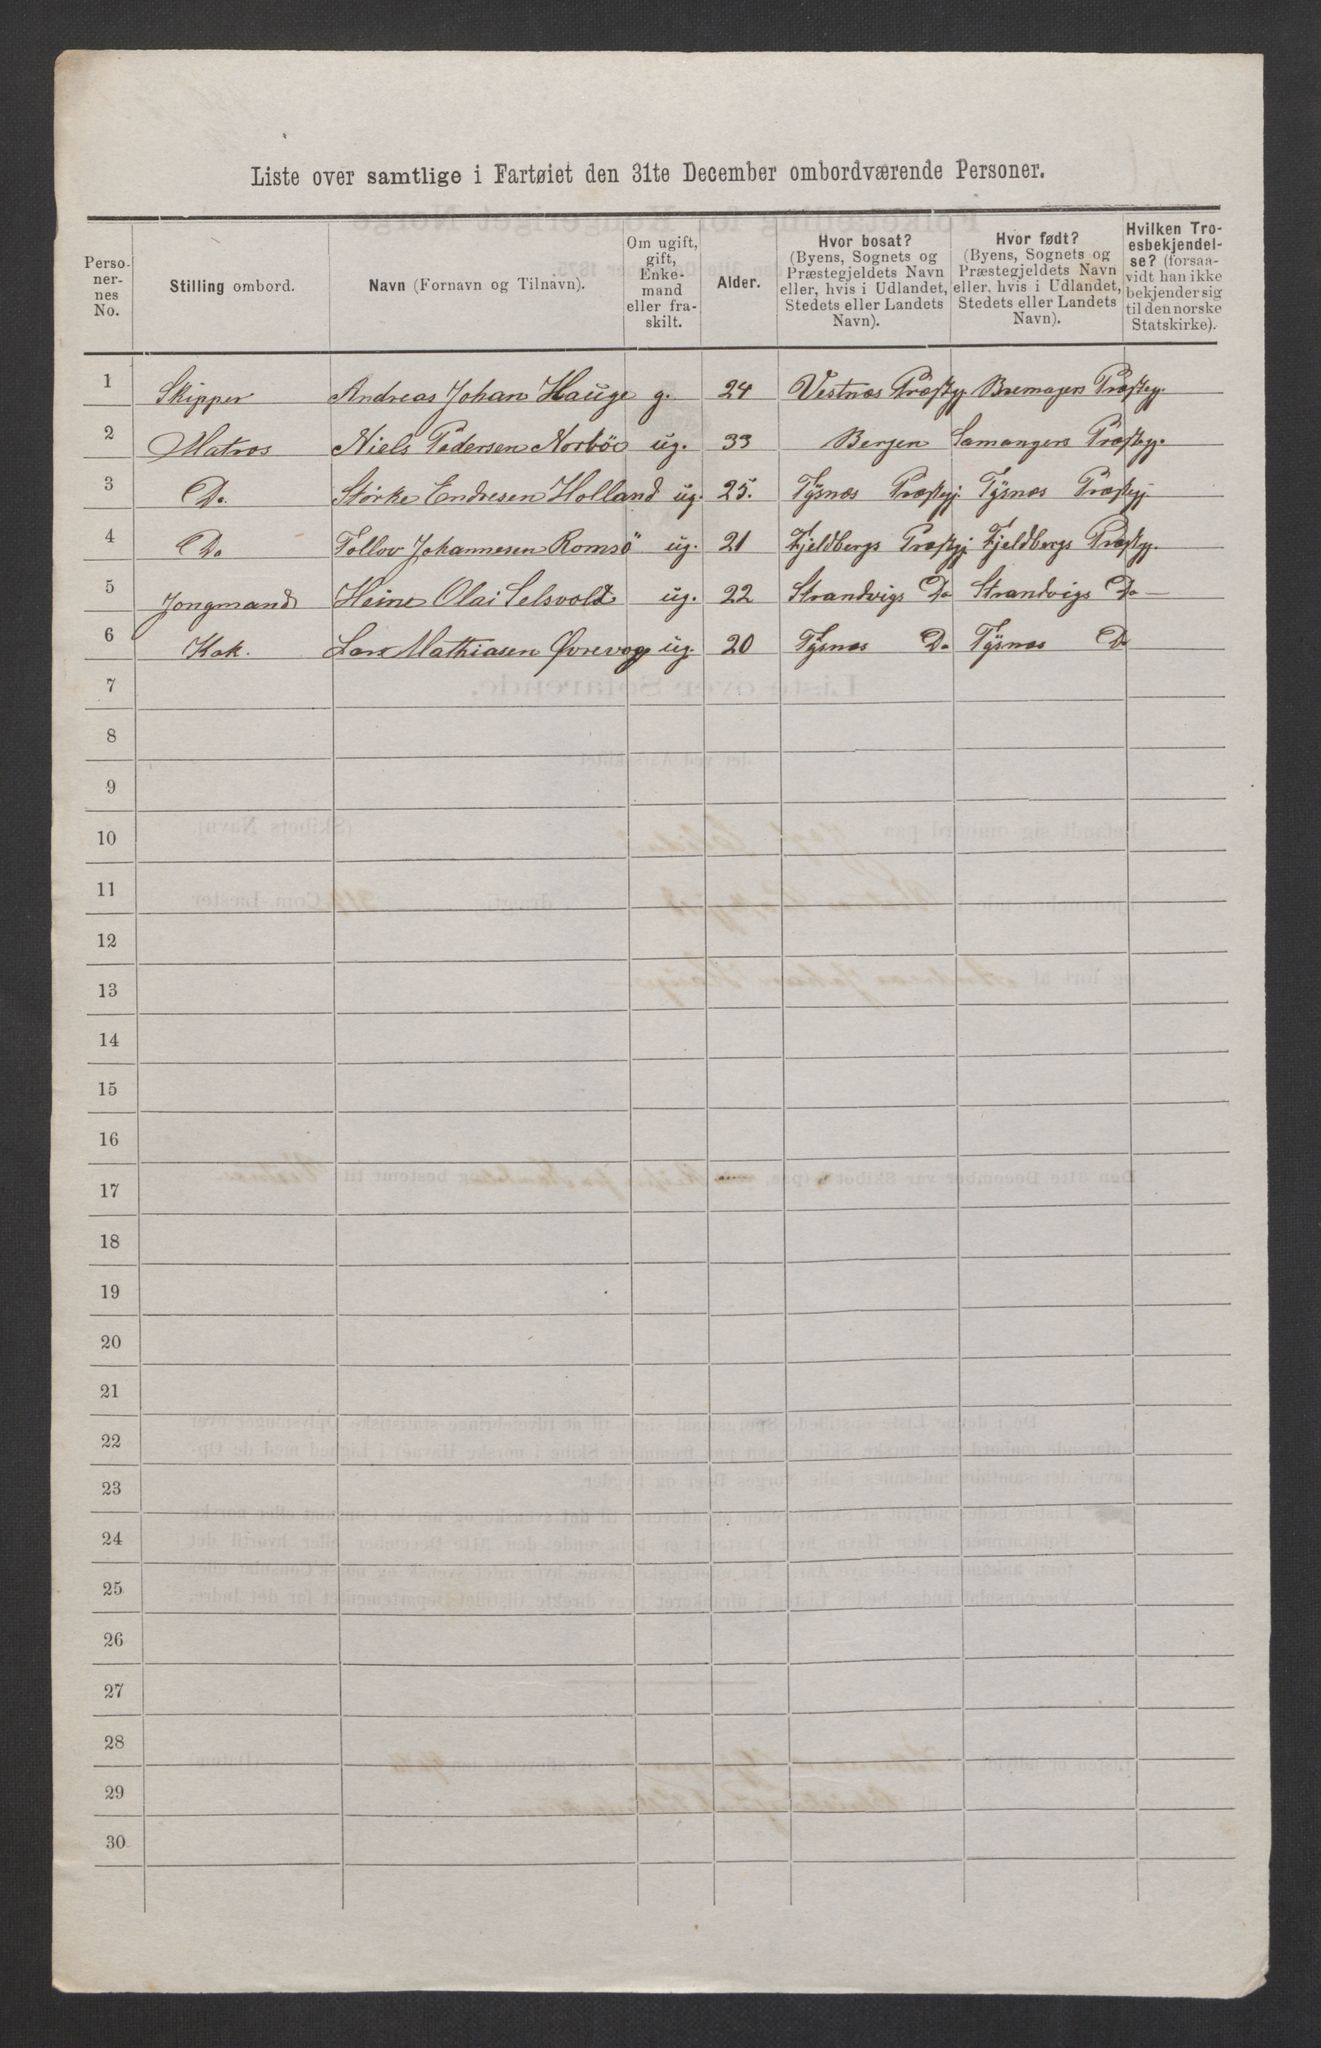 Liste over samtlige i Fartøiet den 31te December ombordværende Personer.
Perso-
ner-
nes
No.
Stilling ombord.
Navn (Fornavn og Tilnavn).
Om ugift,
gift,
Enke-
mand
eller fra-
skilt.
Alder.
Hvor bosat?
(Byens, Sognets og
Præstegjeldets Navn
eller, hvis i Udlandet,
Stedets eller Landets
Navn).
Hvor født?
(Byens, Sognets og
Præstegjeldets Navn
eller, hvis i Udlandet,
Stedets eller Landets
Navn).
Hvilken Tro-
esbekjendel-
se? (forsaa-
vidt han ikke
bekjender sig
til den norske
Statskirke).
1 Skipper Andreas Johan Hauge g. 24 Vestnæs Præstgj. Bremagers Præstegj.
2 Matros Niels Pedersen Norböe ug. 33 Bergen Samangers Præstegj.
3 Do. Störke Endresen Holland ug. 25. Tÿsnæs Præstegj. Tÿsnæs Præstegj.
4 Do Tollov Johannesen Romsö ug. 21 Fjeldbergs Præstgj Fjeldbergs Præstgj.
5 Jongmand Heine Olai Selsvold ug. 22 Strandvigs Do Strandvigs Do —
6 Kok. Lars Mathiasen Øvrevoge ug. 20 Tÿsnæs Do Tÿsnæs Do
7
8
9
10
11
12
13
14
15
16
17
18
19
20
21
22
23
24
25
26
27
28
29
30